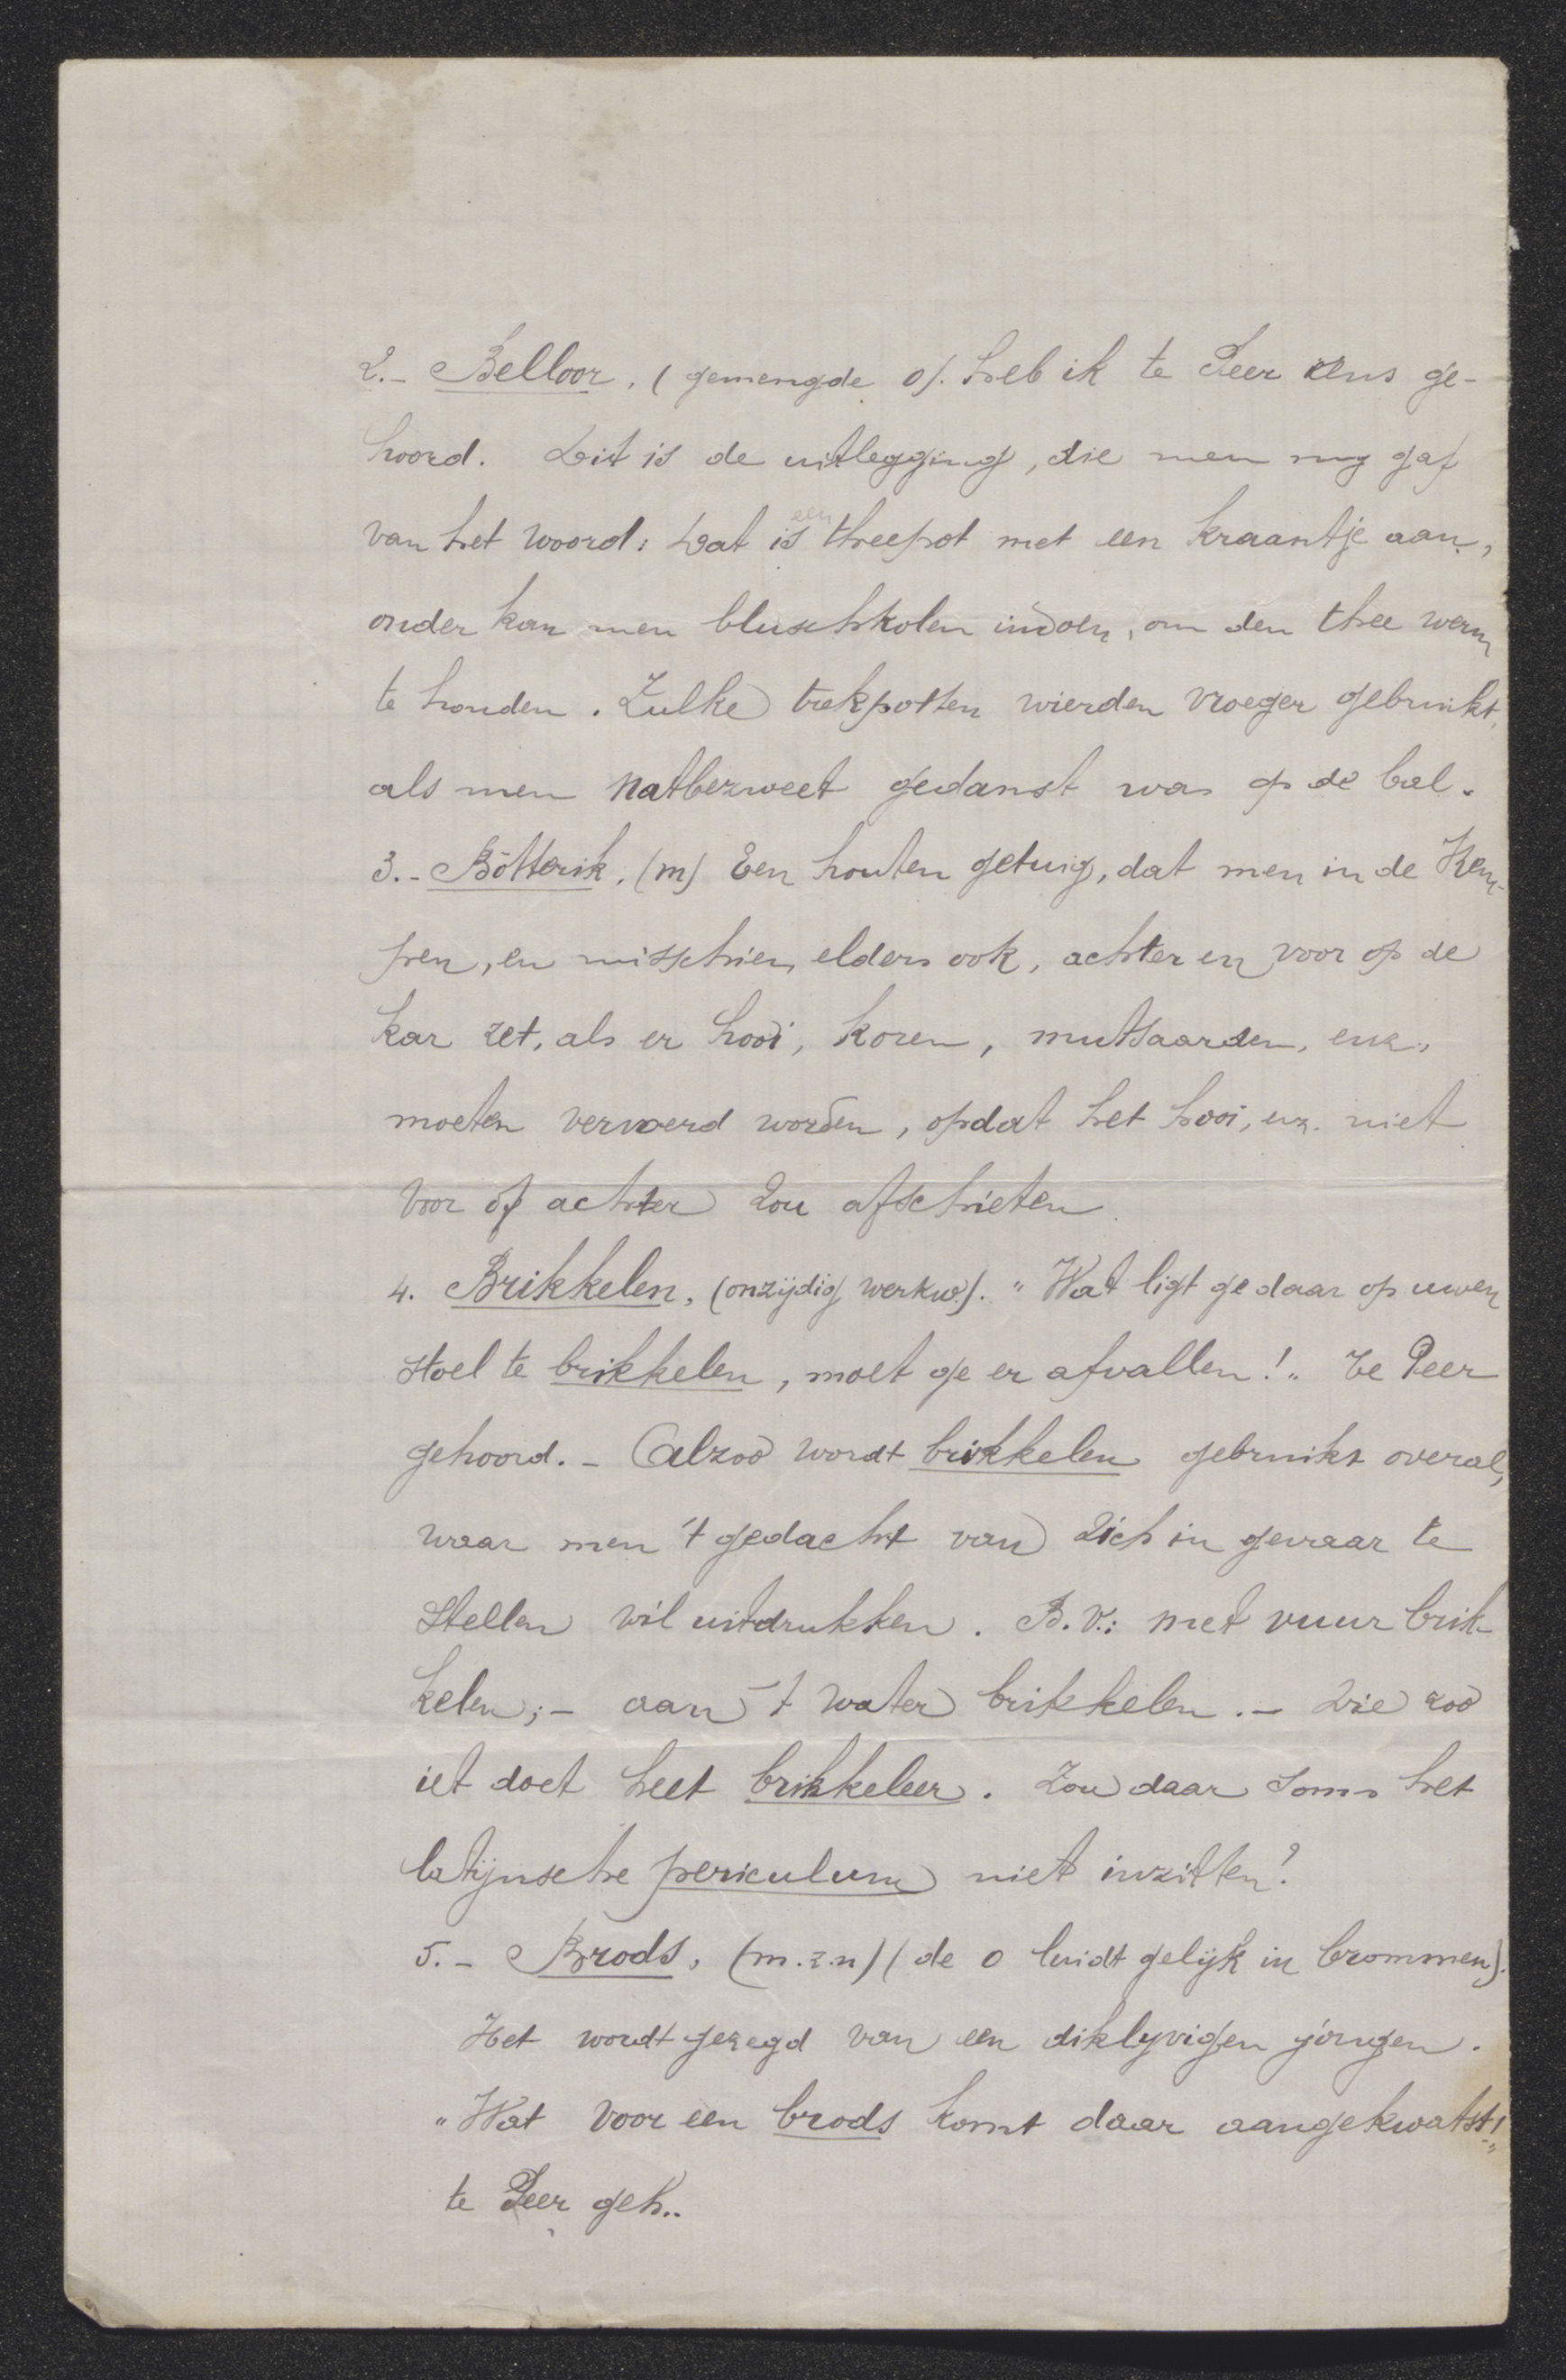 2.- Belloor, (gemengde o). heb ik te Peer eens ge-
hoord. Dit is de uitlegging, die men mij gaf
van het woord: Dat is een theepot met een kraantje aan,
onder kan men bluschkolen indoen, om den thee werm
te houden. Zulke trekpotten wierden vroeger gebruikt,
als men natbezweet gedanst was op de bal.
3.- Bötterik, (m) Een houten getuig, dat men in de Kem-
pen, en misschien elders ook, achter en voor op de
kar zet, als er hooi, koren, mutsaarden, enz.,
moeten vervoerd worden, opdat het hooi, enz. niet
voor of achter zou afschieten.
4. Brikkelen, (onzijdig werkw.). "Wat ligt ge daar op uwen
stoel te brikkelen, moet ge er afvallen!" Te Peer
gehoord. - Alzoo wordt brikkelen gebruikt overal,
waar men 't gedacht van zich in gevaar te
stellen wil uitdrukken. B.v.: met vuur brik-
kelen; - aan 't water brikkelen. - Wie zoo
iet doet heet brikkeleer. Zou daar soms het
latijnsche periculum niet inzitten?
5. - Brods, (m.z.n) (de o luidt gelijk in brommen).
Het wordt gezegd van een diklijvigen jongen.
"Wat voor een brods komt daar aangekwatst!"
te Peer geh..